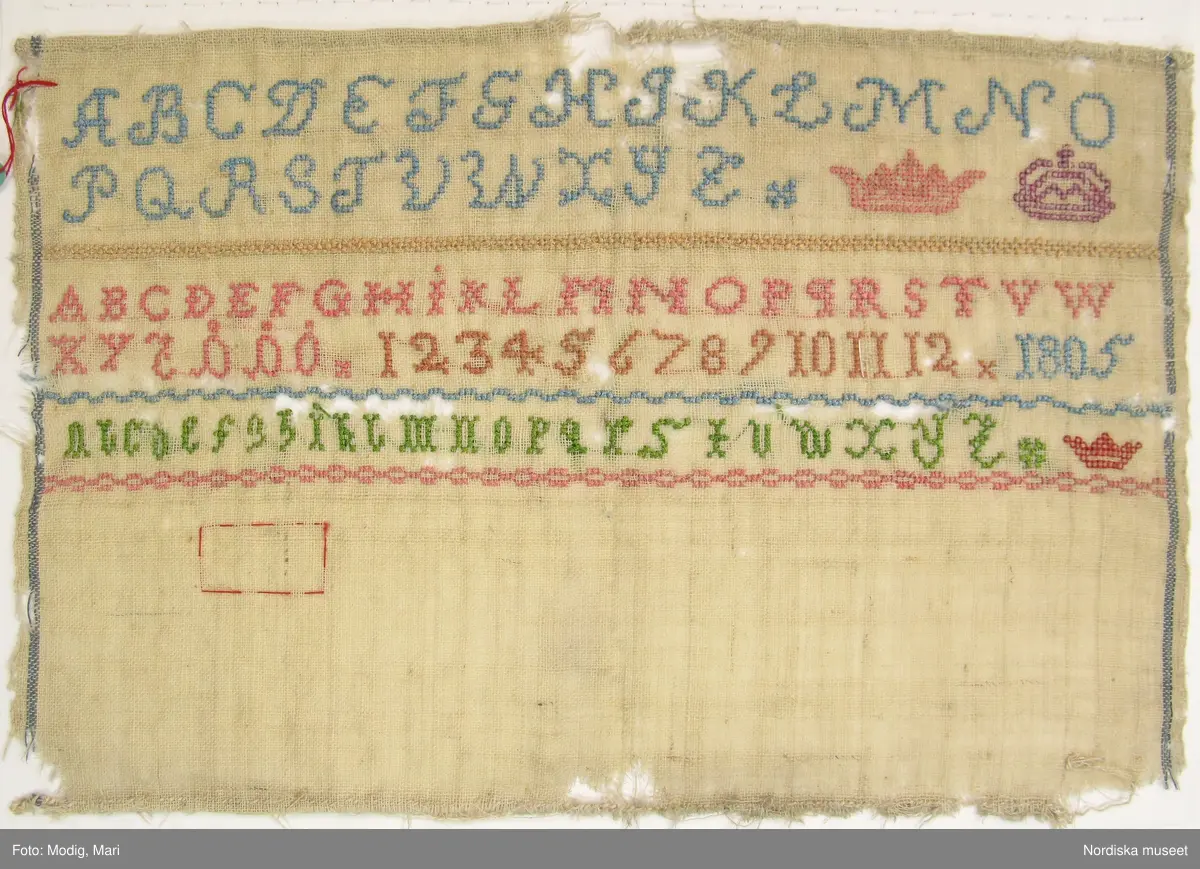 A B C D E F G H I K L M N O
P Q R S T V W X Y Z
A B C D E F G H I K L M N O P Q R S T V W
X Y Z Å Ä Ö 1 2 3 4 5 6 7 8 9 10 11 12 x 1805
a b c d e f g h i k l m n o p q r s t u w x y z
Foto: Modig, Mari
Nordiska museet